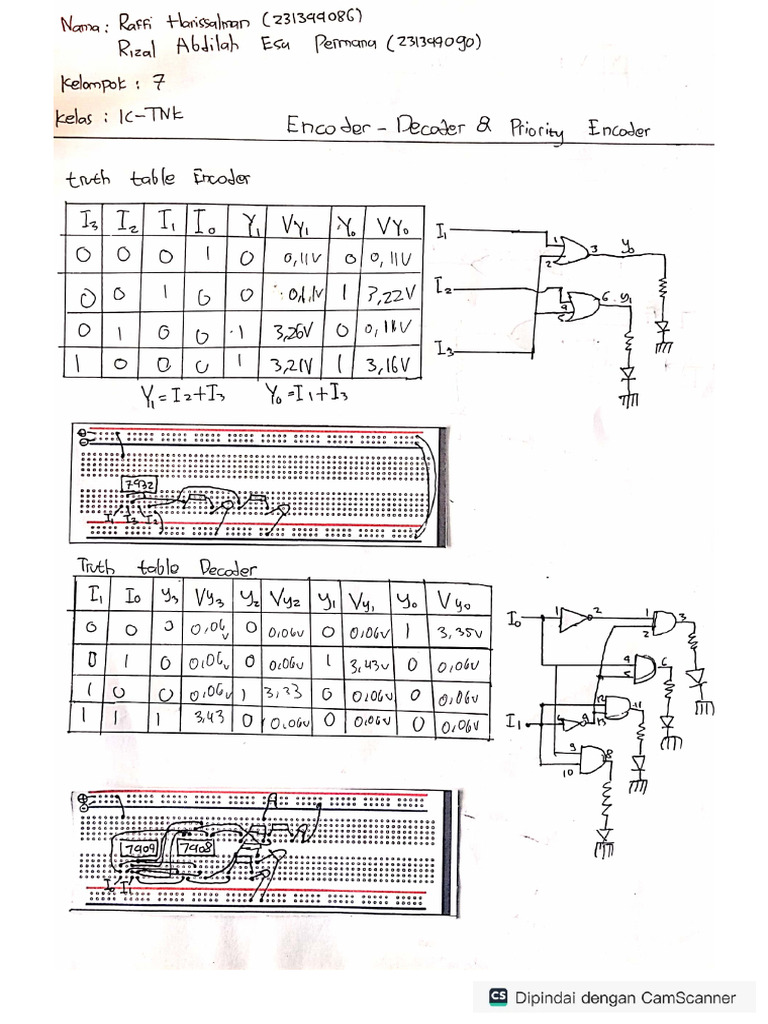 Nama : Raffi Harissalman (231344086)
Rizal Abdilah Esa Permana (231344090)
Kelompok : 7
Kelas : 1C-TNK
Encoder - Decoder & Priority Encoder
truth table Encoder
I3 I2 I1 I0 Y1 VY1 Y0 VY0
0 0 0 1 0 0,11V 0 0,11V
0 0 1 0 0 0,11V 1 3,22V
0 1 0 0 1 3,26V 0 0,11V
1 0 0 0 1 3,21V 1 3,16V
Y1 = I2+I3 Y0 = I1+I3
I1 1 2 3 Y0
I2 4 5 6 Y1
I3
7432
I1 I3 I2
Truth table Decoder
I1 I0 Y3 Vy3 Y2 Vy2 Y1 Vy1 Y0 Vy0
0 0 0 0,06V 0 0,06V 0 0,06V 1 3,35V
0 1 0 0,06V 0 0,06V 1 3,43V 0 0,06V
1 0 0 0,06V 1 3,33 0 0,06V 0 0,06V
1 1 1 3,43 0 0,06V 0 0,06V 0 0,06V
I0 1 2 1 2 3
4 5 6
I1 12 13 11
9 10 8
7404 7408
I0 I1
CS Dipindai dengan CamScanner